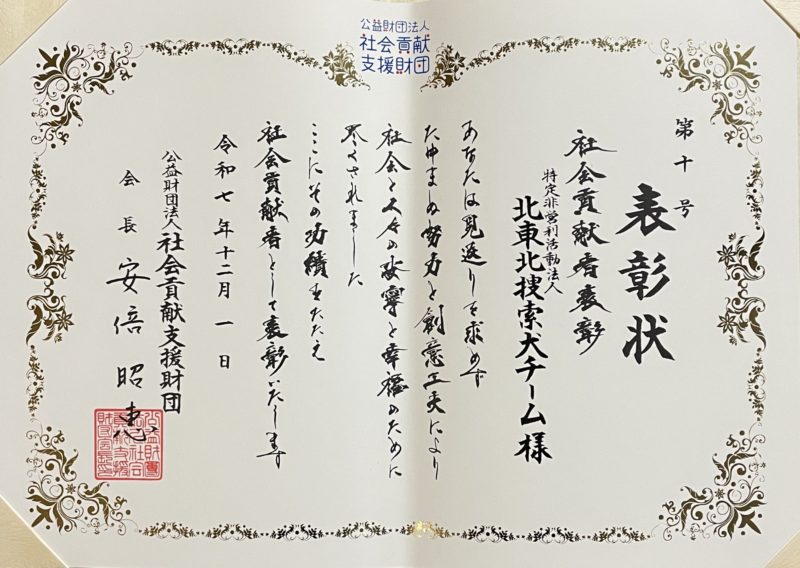 公益財団法人
社会貢献
支援財団
第十号
表彰状
社会貢献者表彰
特定非営利活動法人
北東北捜索犬チーム様
あなたは見返りを求めず
たゆまぬ努力と創意工夫により
社会と人々の安寧と幸福のために
尽くされました
ここにその功績をたたえ
社会貢献者として表彰いたします
令和七年十二月一日
公益財団法人 社会貢献支援財団
会長 安倍昭恵